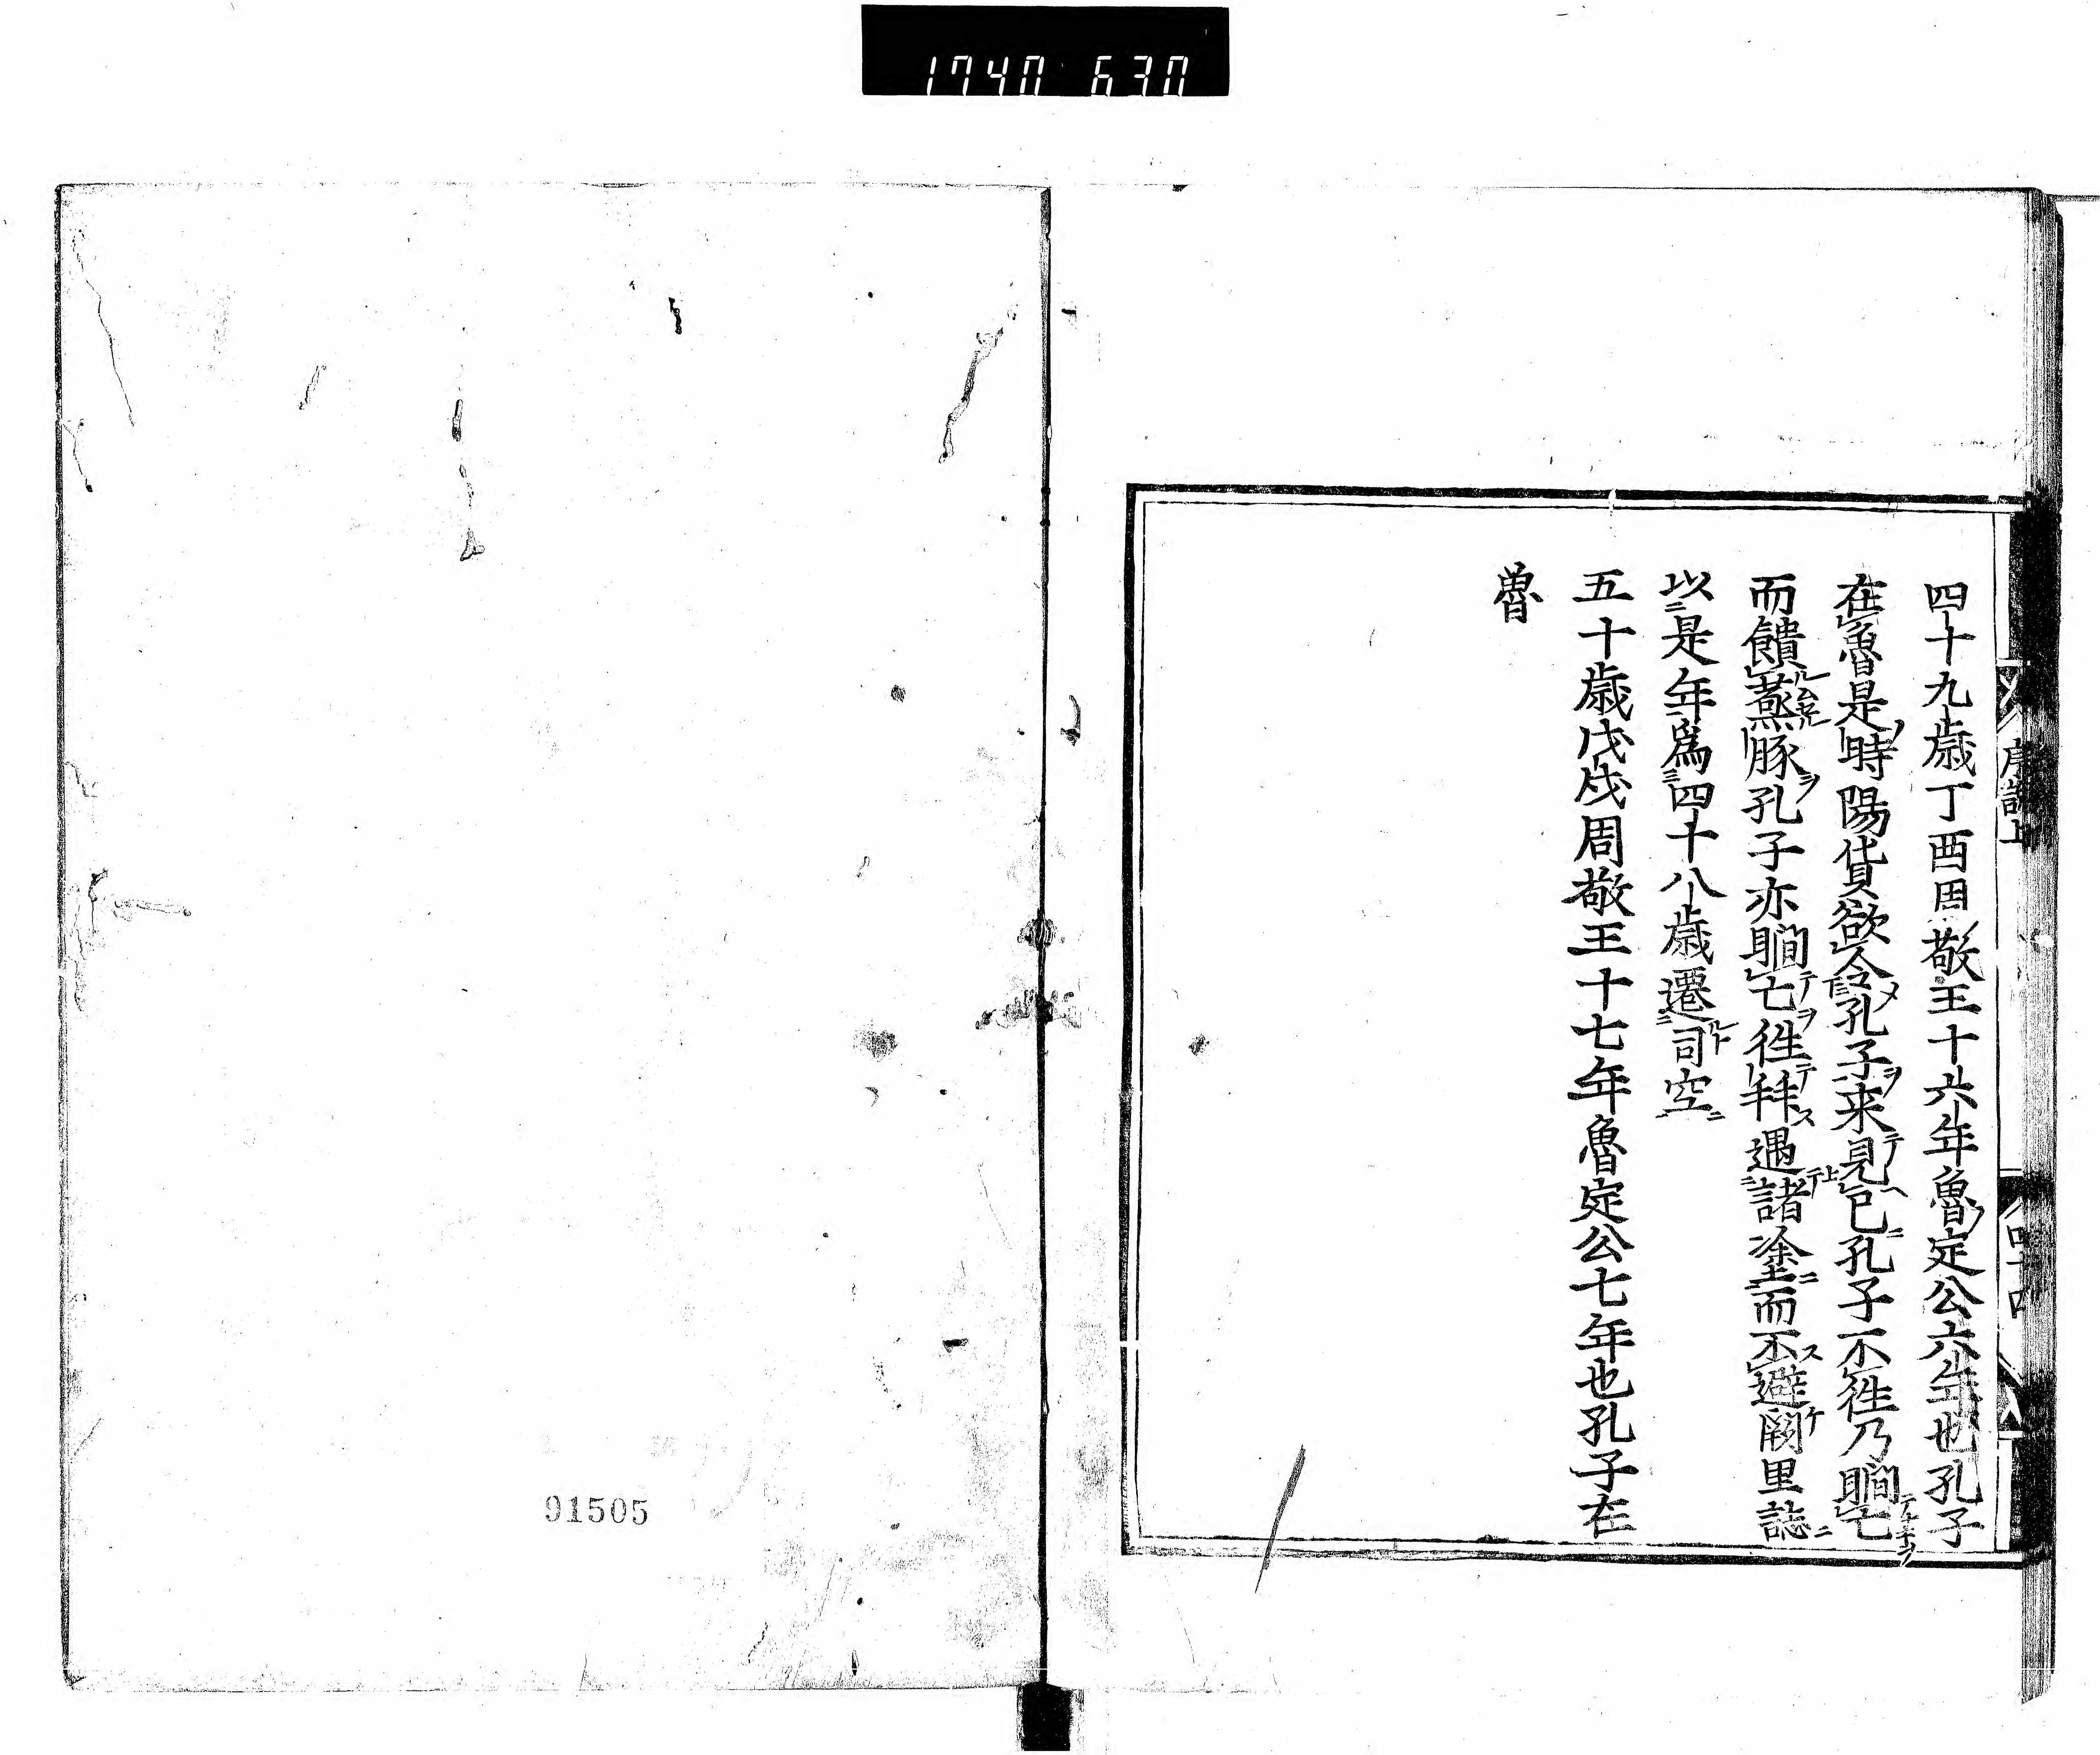 1740 630
四十九歳丁酉周敬王十六年魯定公六年也孔子
在魯是時陽貨欲令孔子来見已孔子不徃乃瞷亡
而饋蒸豚孔子亦瞷亡徃拜遇諸塗而不避闕里誌
以是年爲四十八歳遷司空
五十歳戊戌周敬王十七年魯定公七年也孔子在
魯
91505